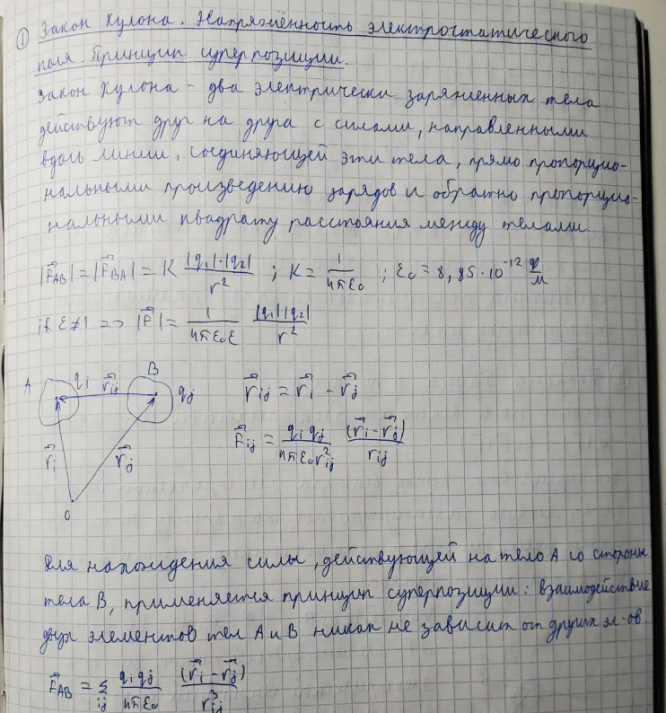 ① Закон Кулона. Напряжённость электростатического
поля. Принцип суперпозиции.
Закон Кулона - два электрически заряженных тела
действуют друг на друга с силами, направленными
вдоль линии, соединяющей эти тела, прямо пропорцио-
нальными произведению зарядов и обратно пропорцио-
нальными квадрату расстояния между телами.
|F⃗_AB| = |F⃗_BA| = K |q₁|·|q₂| / r² ; K = 1 / 4πε₀ ; ε₀ = 8,85·10⁻¹² Ф/м
if ε≠1 => |F⃗| = 1 / 4πε₀ε |q₁||q₂| / r²
A q_i r⃗_ij B q_j r⃗_ij = r⃗_i - r⃗_j
r⃗_i r⃗_j F⃗_ij = q_i q_j / 4πε₀r²_ij (r⃗_i - r⃗_j) / r_ij
O
Для нахождения силы, действующей на тело A со стороны
тела B, применяется принцип суперпозиции: взаимодействие
двух элементов тел A и B никак не зависит от других эл-ов.
F⃗_AB = Σ_ij q_i q_j / 4πε₀ (r⃗_i - r⃗_j) / r³_ij